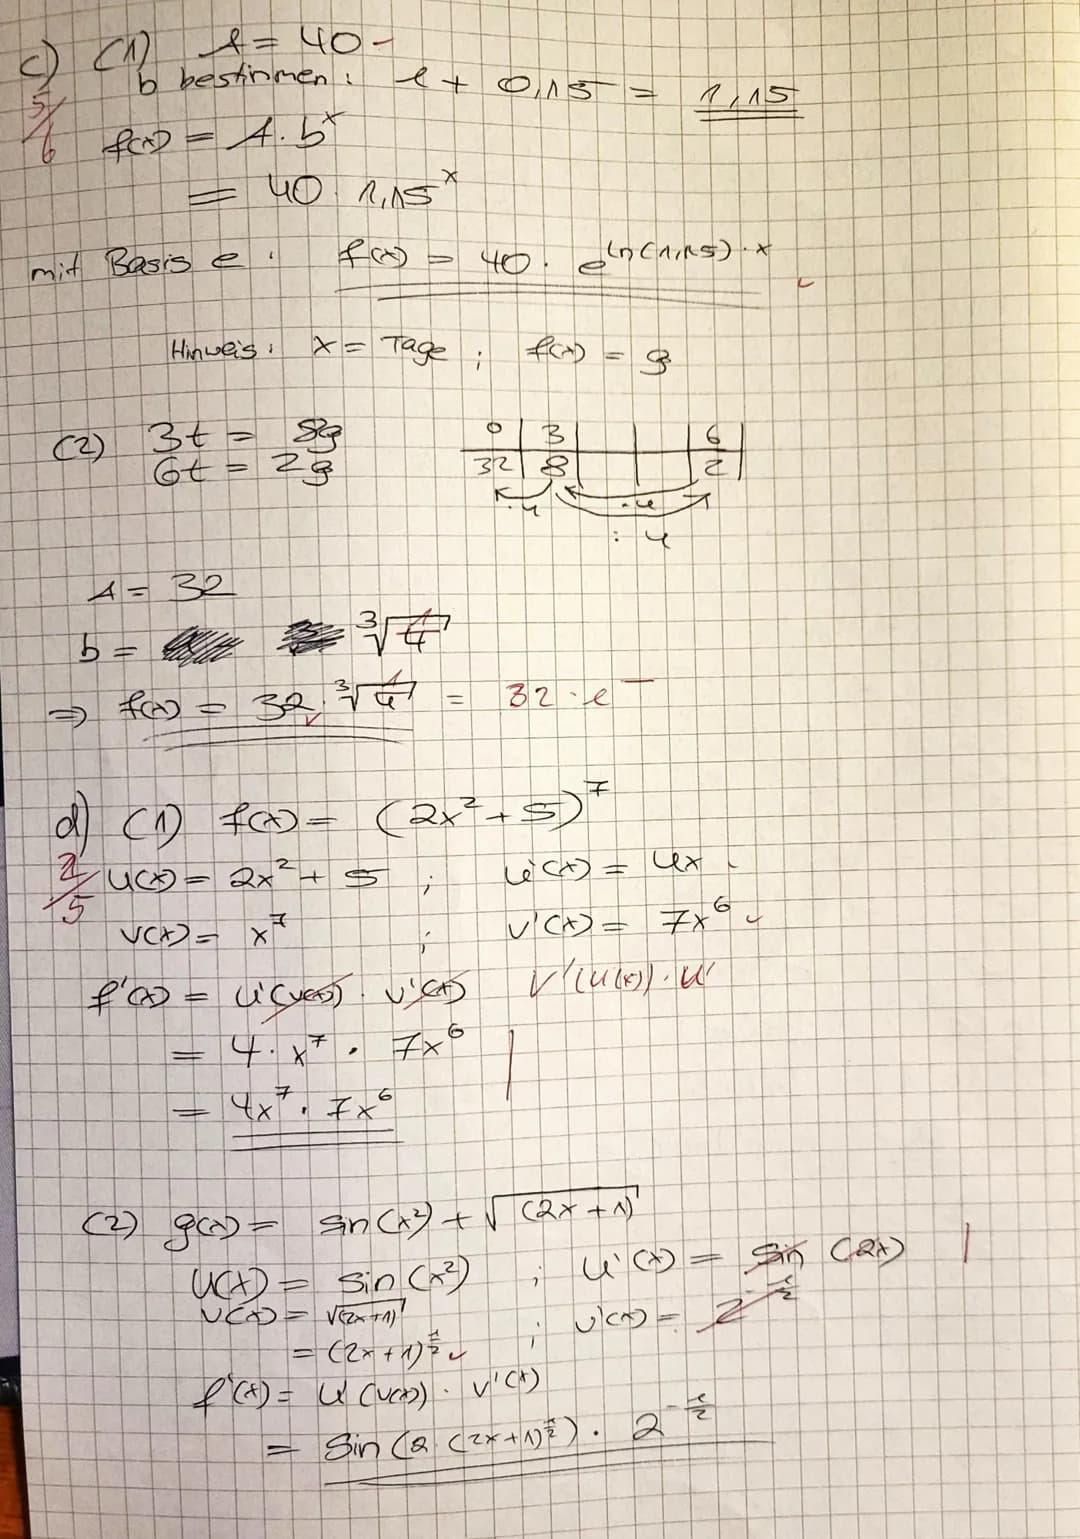 c) (1) A = 40
5/6
b bestimmen: 1 + 0,15 = 1,15
f(x) = A · b^x
= 40 · 1,15^x
mit Basis e: f(x) = 40 · e^ln(1,15)·x
Hinweis: x = Tage ; f(x) = g
(2) 3t = 8g
6t = 2g
0 | 3 | | | 6
32 | 8 | | | 2
·4 ·4
: 4
A = 32
b = ∛4
⇒ f(x) = 32 · ∛4 = 32 · e
d) (1) f(x) = (2x² + 5)^7
2/5
u(x) = 2x² + 5 ; u'(x) = 4x
v(x) = x^7 ; v'(x) = 7x^6
f'(x) = u'(v(x)) · v'(x) v'(u(x)) · u'
= 4 · x^7 · 7x^6
= 4x^7 · 7x^6
(2) g(x) = sin(x²) + √(2x + 1)
u(x) = sin(x²) ; u'(x) = sin (2x)
v(x) = √(2x+1) ; v'(x) = 2^-1/2
= (2x + 1)^1/2
f'(x) = u'(v(x)) · v'(x)
= sin(2 · (2x+1)^1/2) · 2^-1/2